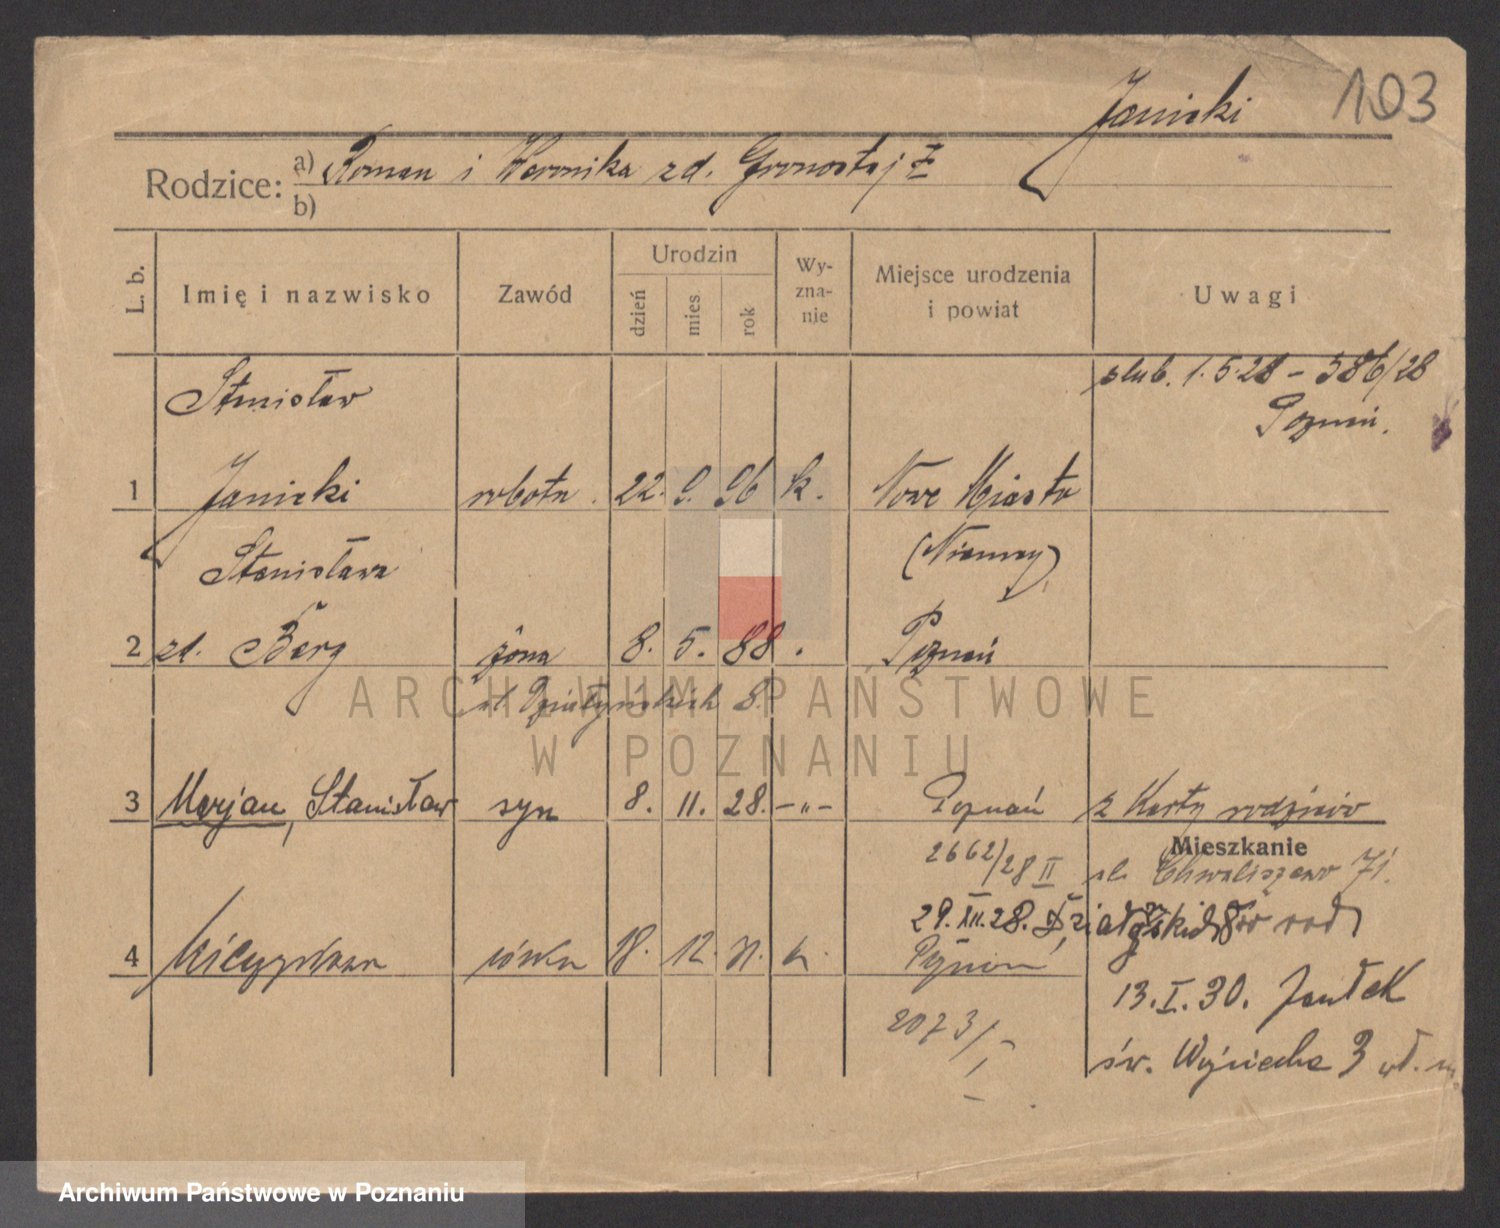 Janicki 103
Rodzice: a) Roman i Weronika zd. Gronostaj
b)
L. b. Imię i nazwisko Zawód Urodzin dzień mies rok Wy-zna-nie Miejsce urodzenia i powiat Uwagi
Stanisław ślub. 1.5.28 - 586/28
Poznań.
1 Janicki robotn. 22. 9. 96 k. Nowe Miasto
Stanisława (Niemcy)
2 zd. Berg żona 8. 5. 88 Poznań
ul. Działyńskich 8.
3 Marjan, Stanisław syn 8. 11. 28. -"- Poznań z Karty rodziców
Mieszkanie
2662/28 II ul. Chwaliszewo 71.
29.XII.28. Działyńskich 8
4 Mieczysława córka 18. 12. 31. k. Poznań
13.I.30.
2073/
św. Wojciecha 3
ARCHIWUM PAŃSTWOWE
W POZNANIU
Archiwum Państwowe w Poznaniu